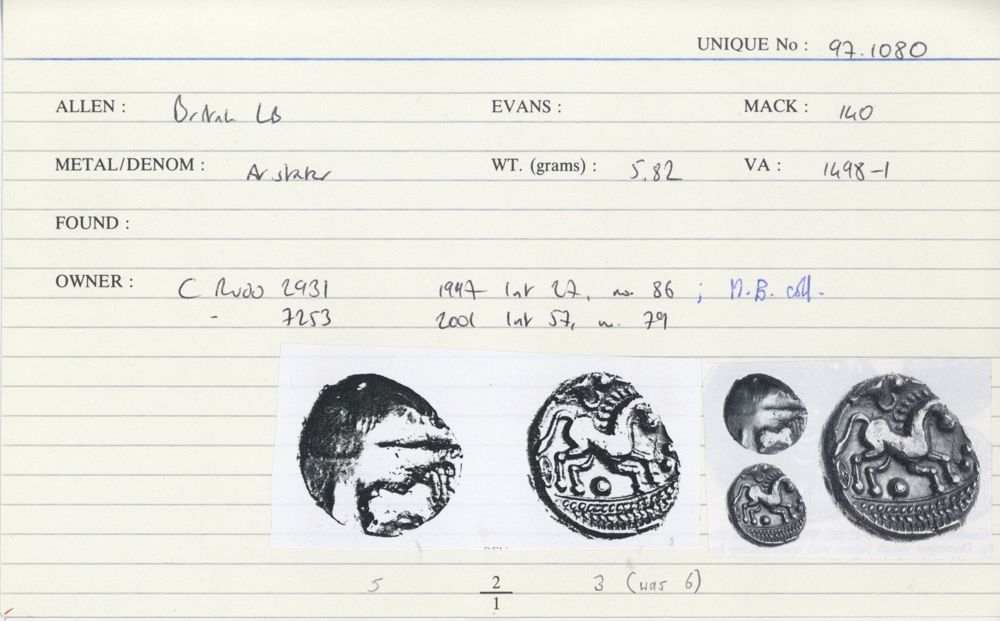 UNIQUE No : 97.1080
ALLEN : British LB EVANS : MACK : 140
METAL/DENOM : AV stater WT. (grams) : 5.82 VA : 1498-1
FOUND :
OWNER : C Rudd 2931 1997 list 27, no. 86 ; M.B. coll.
- 7253 2001 list 57, no. 79
5 2 3 (was 6)
1